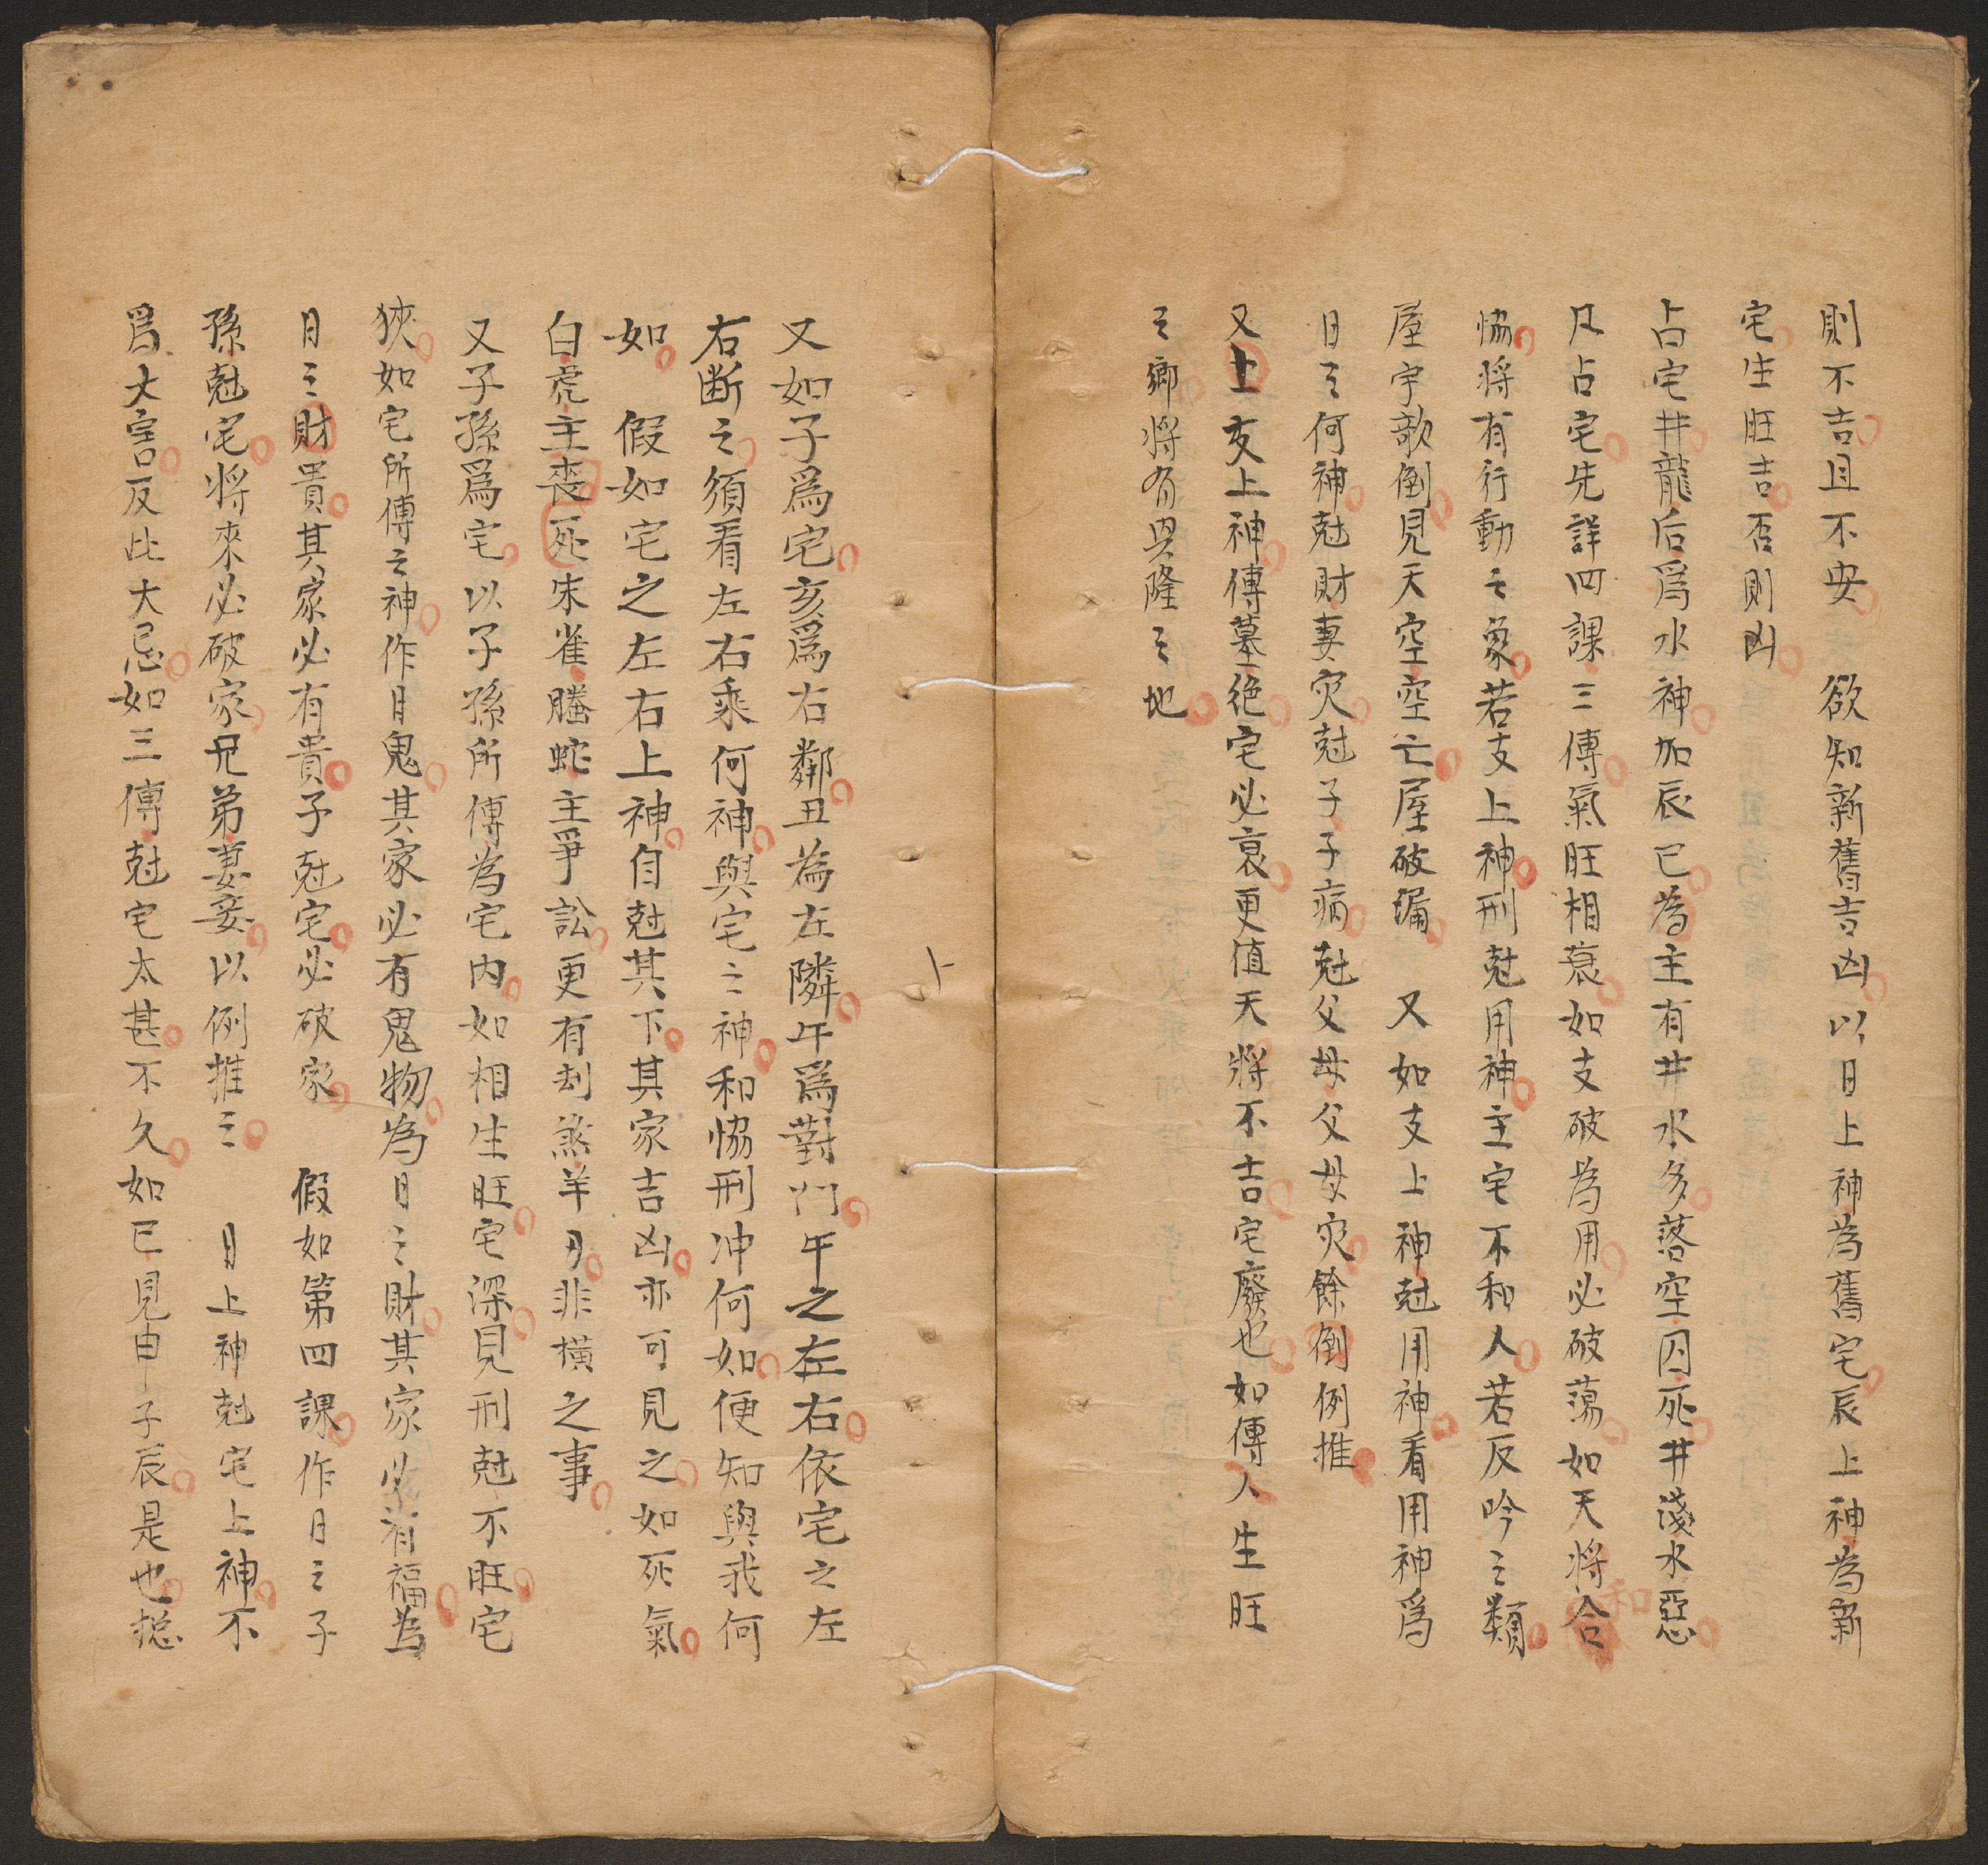 則不吉且不安　欲知新舊吉凶以日上神為舊宅辰上神為新
宅生旺吉否則凶
占宅井龍后爲水神加辰巳為主有井水多落空囚死井淺水惡
凡占宅先詳四課三傳氣旺相衰如支破為用必破蕩如天將合
恊將有行動之象若支上神刑尅用神主宅不和人若反吟之類
屋宇欹倒見天空空亡屋破漏　又如支上神尅用神看用神爲
日之何神尅財妻灾尅子子病尅父母父母灾餘倒例推
又上支上神傳墓絶宅必衰更值天將不吉宅廢也如傳人生旺
之鄉將有興隆之地
又如子爲宅亥爲右鄰丑為左隣午爲對門午之左右依宅之左
右断之須看左右乘何神與宅之神和恊刑冲何如便知與我何
如　假如宅之左右上神自尅其下其家吉凶亦可見之如死氣
白虎主喪死朱雀螣蛇主爭訟更有刦煞羊刃非橫之事
又子孫爲宅以子孫所傳為宅内如相生旺宅深見刑尅不旺宅
狹如宅所傳之神作日鬼其家必有鬼物為日之財其家必有福為
日之財貴其家必有貴子尅宅必破家　假如第四課作日之子
孫尅宅將來必破家兄弟妻妾以例推之　日上神尅宅上神不
爲大害反此大忌如三傳尅宅太甚不久如巳見申子辰是也揔